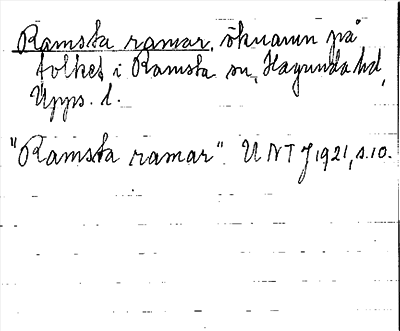 Ramsta ramar, öknamn på
folket i Ramsta sn, Hagunda hd,
Upps. l.
"Ramsta ramar". UNT J 1921, s. 10.